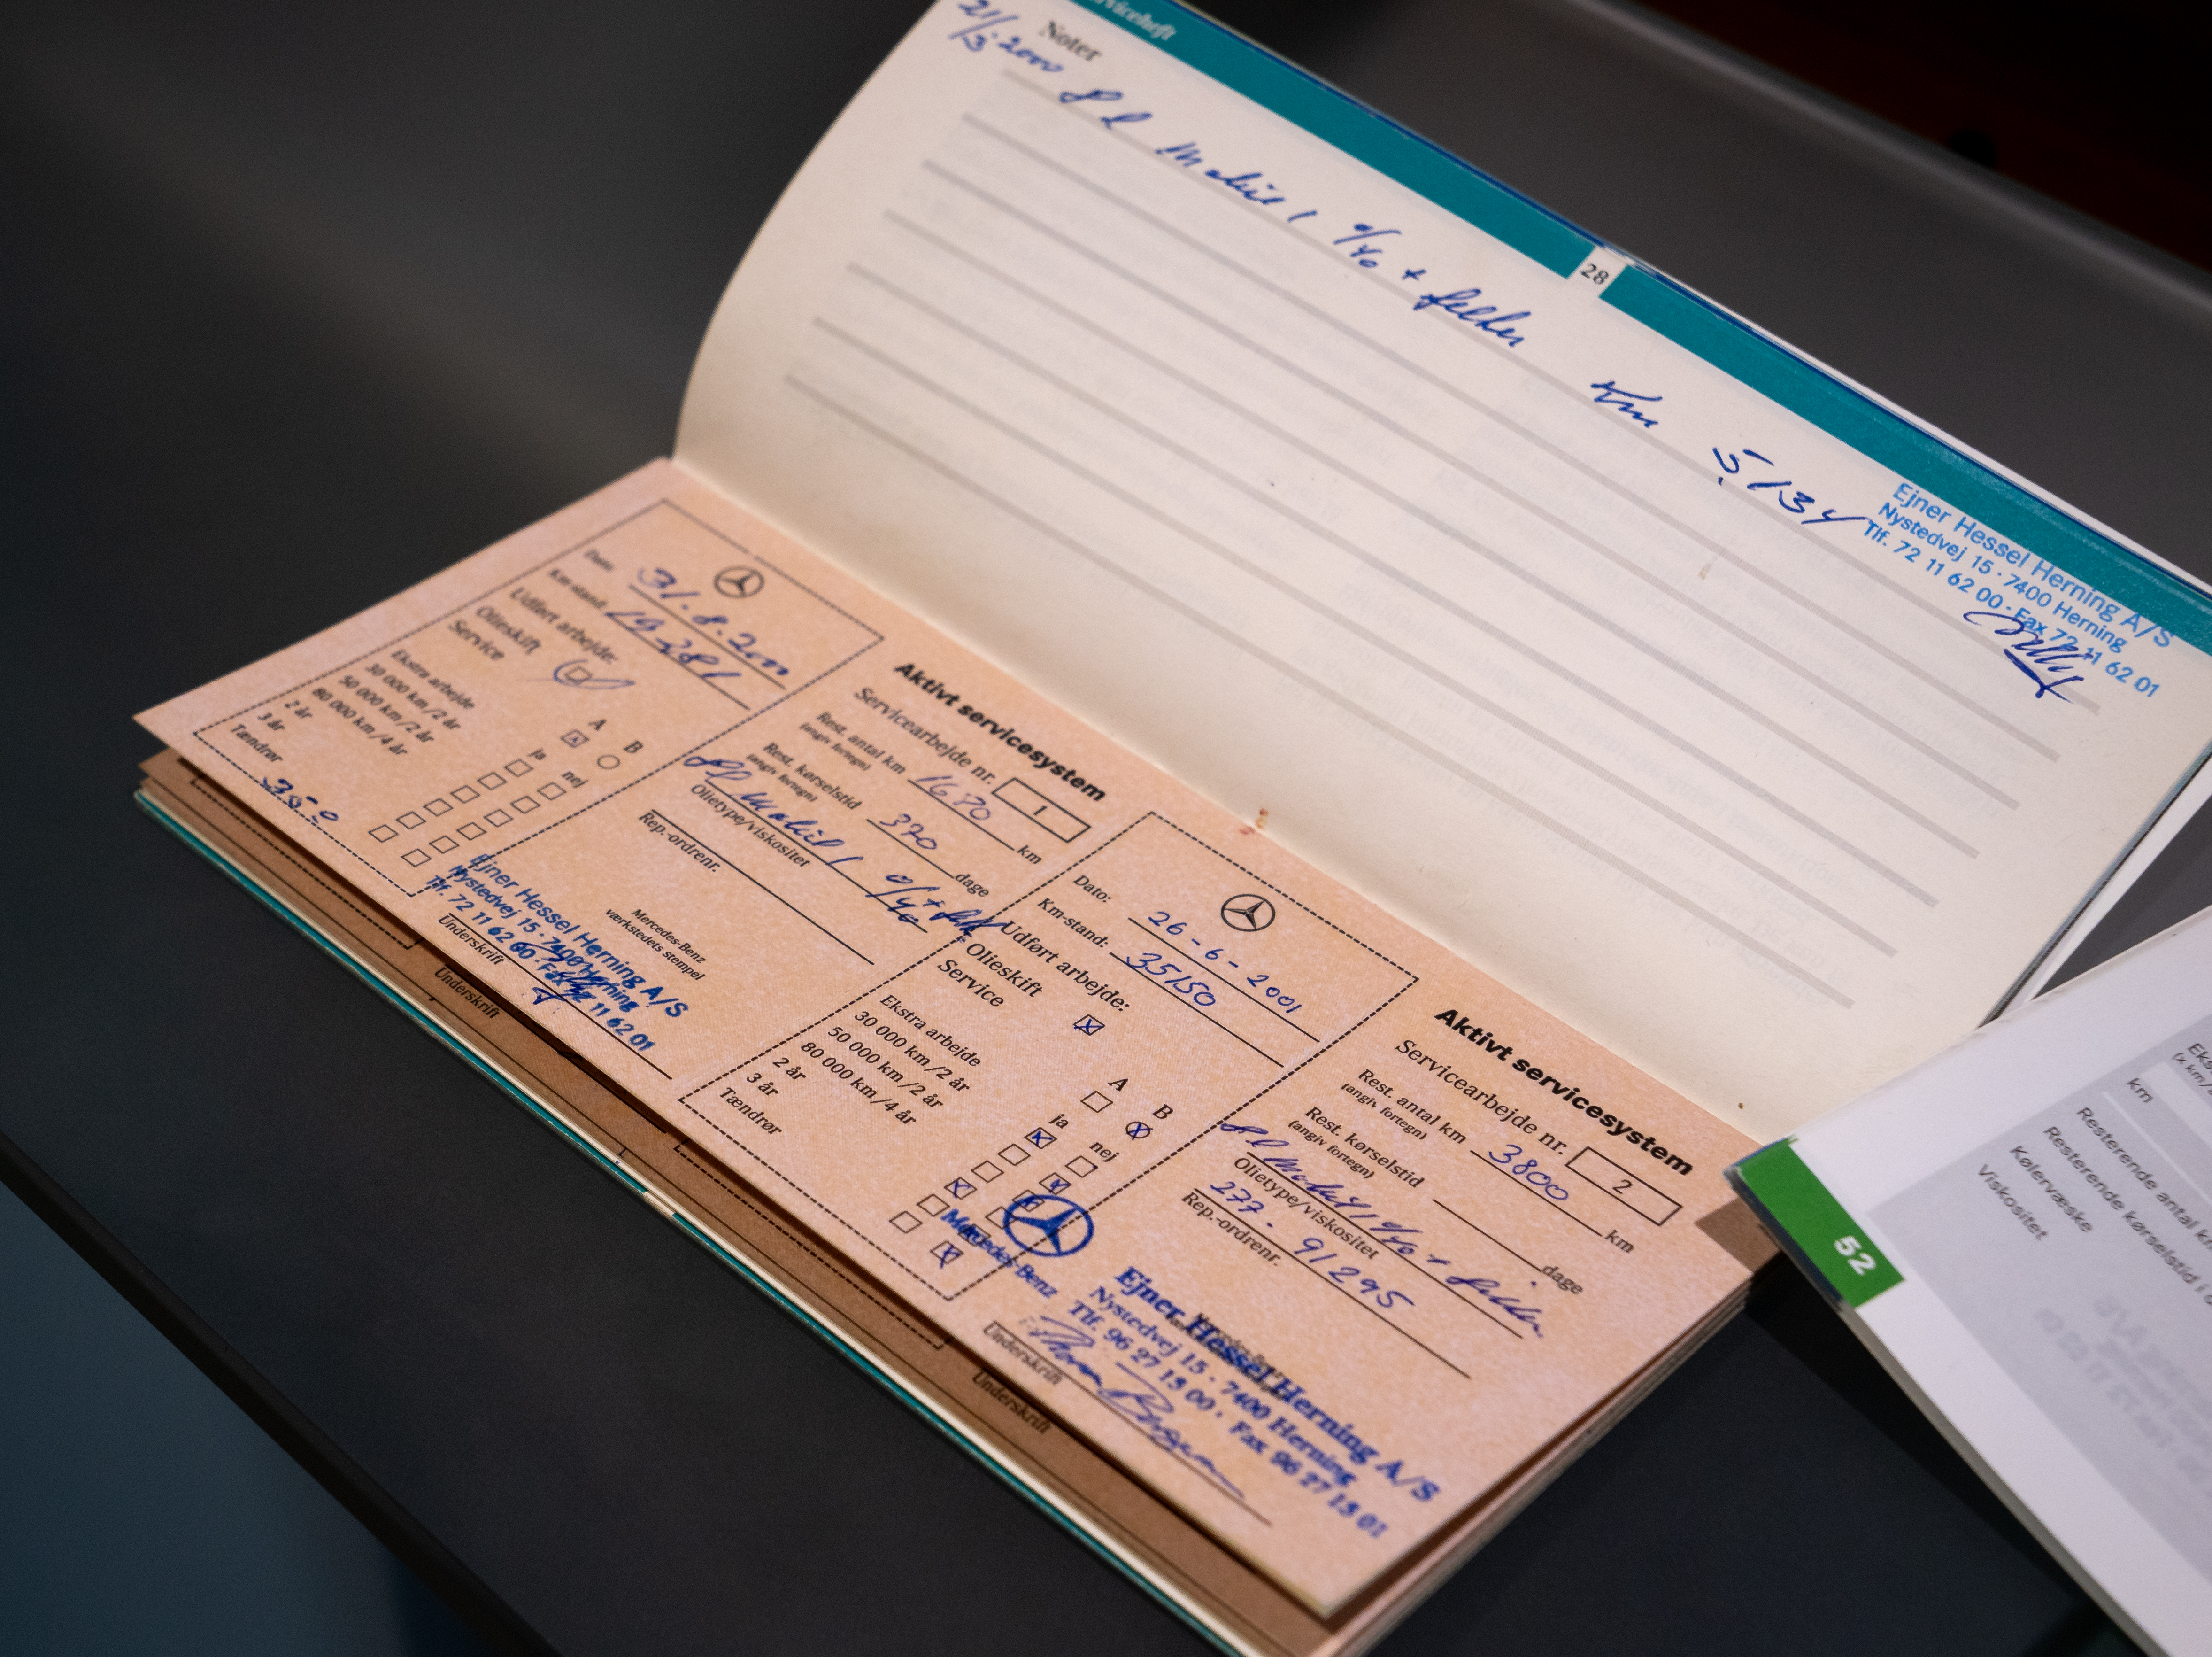 Serviceheft
Noter
21/3-2000
8 l Mobil 1 0/40 + filter Km 5134
28
Ejner Hessel Herning A/S
Nystedvej 15 · 7400 Herning
Tlf. 72 11 62 00 · Fax 72 11 62 01
Dato: 31.8.2000
Km-stand: 19281
Udført arbejde:
Olieskift
Service
A B
ja nej
Ekstra arbejde
30 000 km/2 år
50 000 km/2 år
80 000 km/4 år
2 år
3 år
Tændrør
Aktivt servicesystem
Servicearbejde nr. 1
Rest. antal km 1670 km
(angiv fortegn)
Rest. kørselstid 370 dage
(angiv fortegn)
8 l Mobil 1 0/40 + filter
Olietype/viskositet
Rep.-ordrenr.
Mercedes-Benz
værkstedets stempel
Ejner Hessel Herning A/S
Nystedvej 15 · 7400 Herning
Tlf. 72 11 62 00 · Fax 72 11 62 01
Underskrift
Underskrift
Dato: 26-6-2001
Km-stand: 35150
Udført arbejde:
Olieskift
Service
A B
ja nej
Ekstra arbejde
30 000 km/2 år
50 000 km/2 år
80 000 km/4 år
2 år
3 år
Tændrør
Aktivt servicesystem
Servicearbejde nr. 2
Rest. antal km 3800 km
(angiv fortegn)
Rest. kørselstid dage
(angiv fortegn)
8 l Mobil 1 0/40 + filter
Olietype/viskositet
277-91295
Rep.-ordrenr.
Mercedes-Benz
Ejner Hessel Herning A/S
Nystedvej 15 · 7400 Herning
Tlf. 96 27 13 00 · Fax 96 27 13 01
Underskrift
Underskrift
km
Resterende antal
Resterende kørselstid i
Kølervæske
Viskositet
52